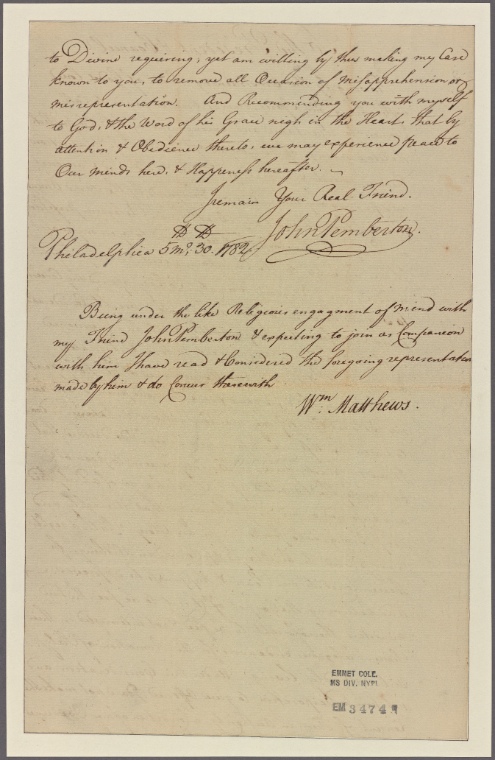 to Divine requiring, yet am willing by thus making my Case
known to you, to remove all Occasion of misapprehension or
misrepresentation. And Recommending you with myself
to God, & the Word of his Grace nigh in the Heart, that by
attention & Obedience thereto, we may experience peace to
Our minds here, & Happiness hereafter.
I remain Your Real Friend.
John Pemberton.
Philadelphia 5 mo. 30. 1782
Being under the like Religious engagement of mind with
my Friend John Pemberton & expecting to join as Companion
with him I have read & Considered the foregoing representation
made by him & do Concur therewith
Wm. Matthews.
EMMET COLL.
MS DIV. NYPL
EM 3474